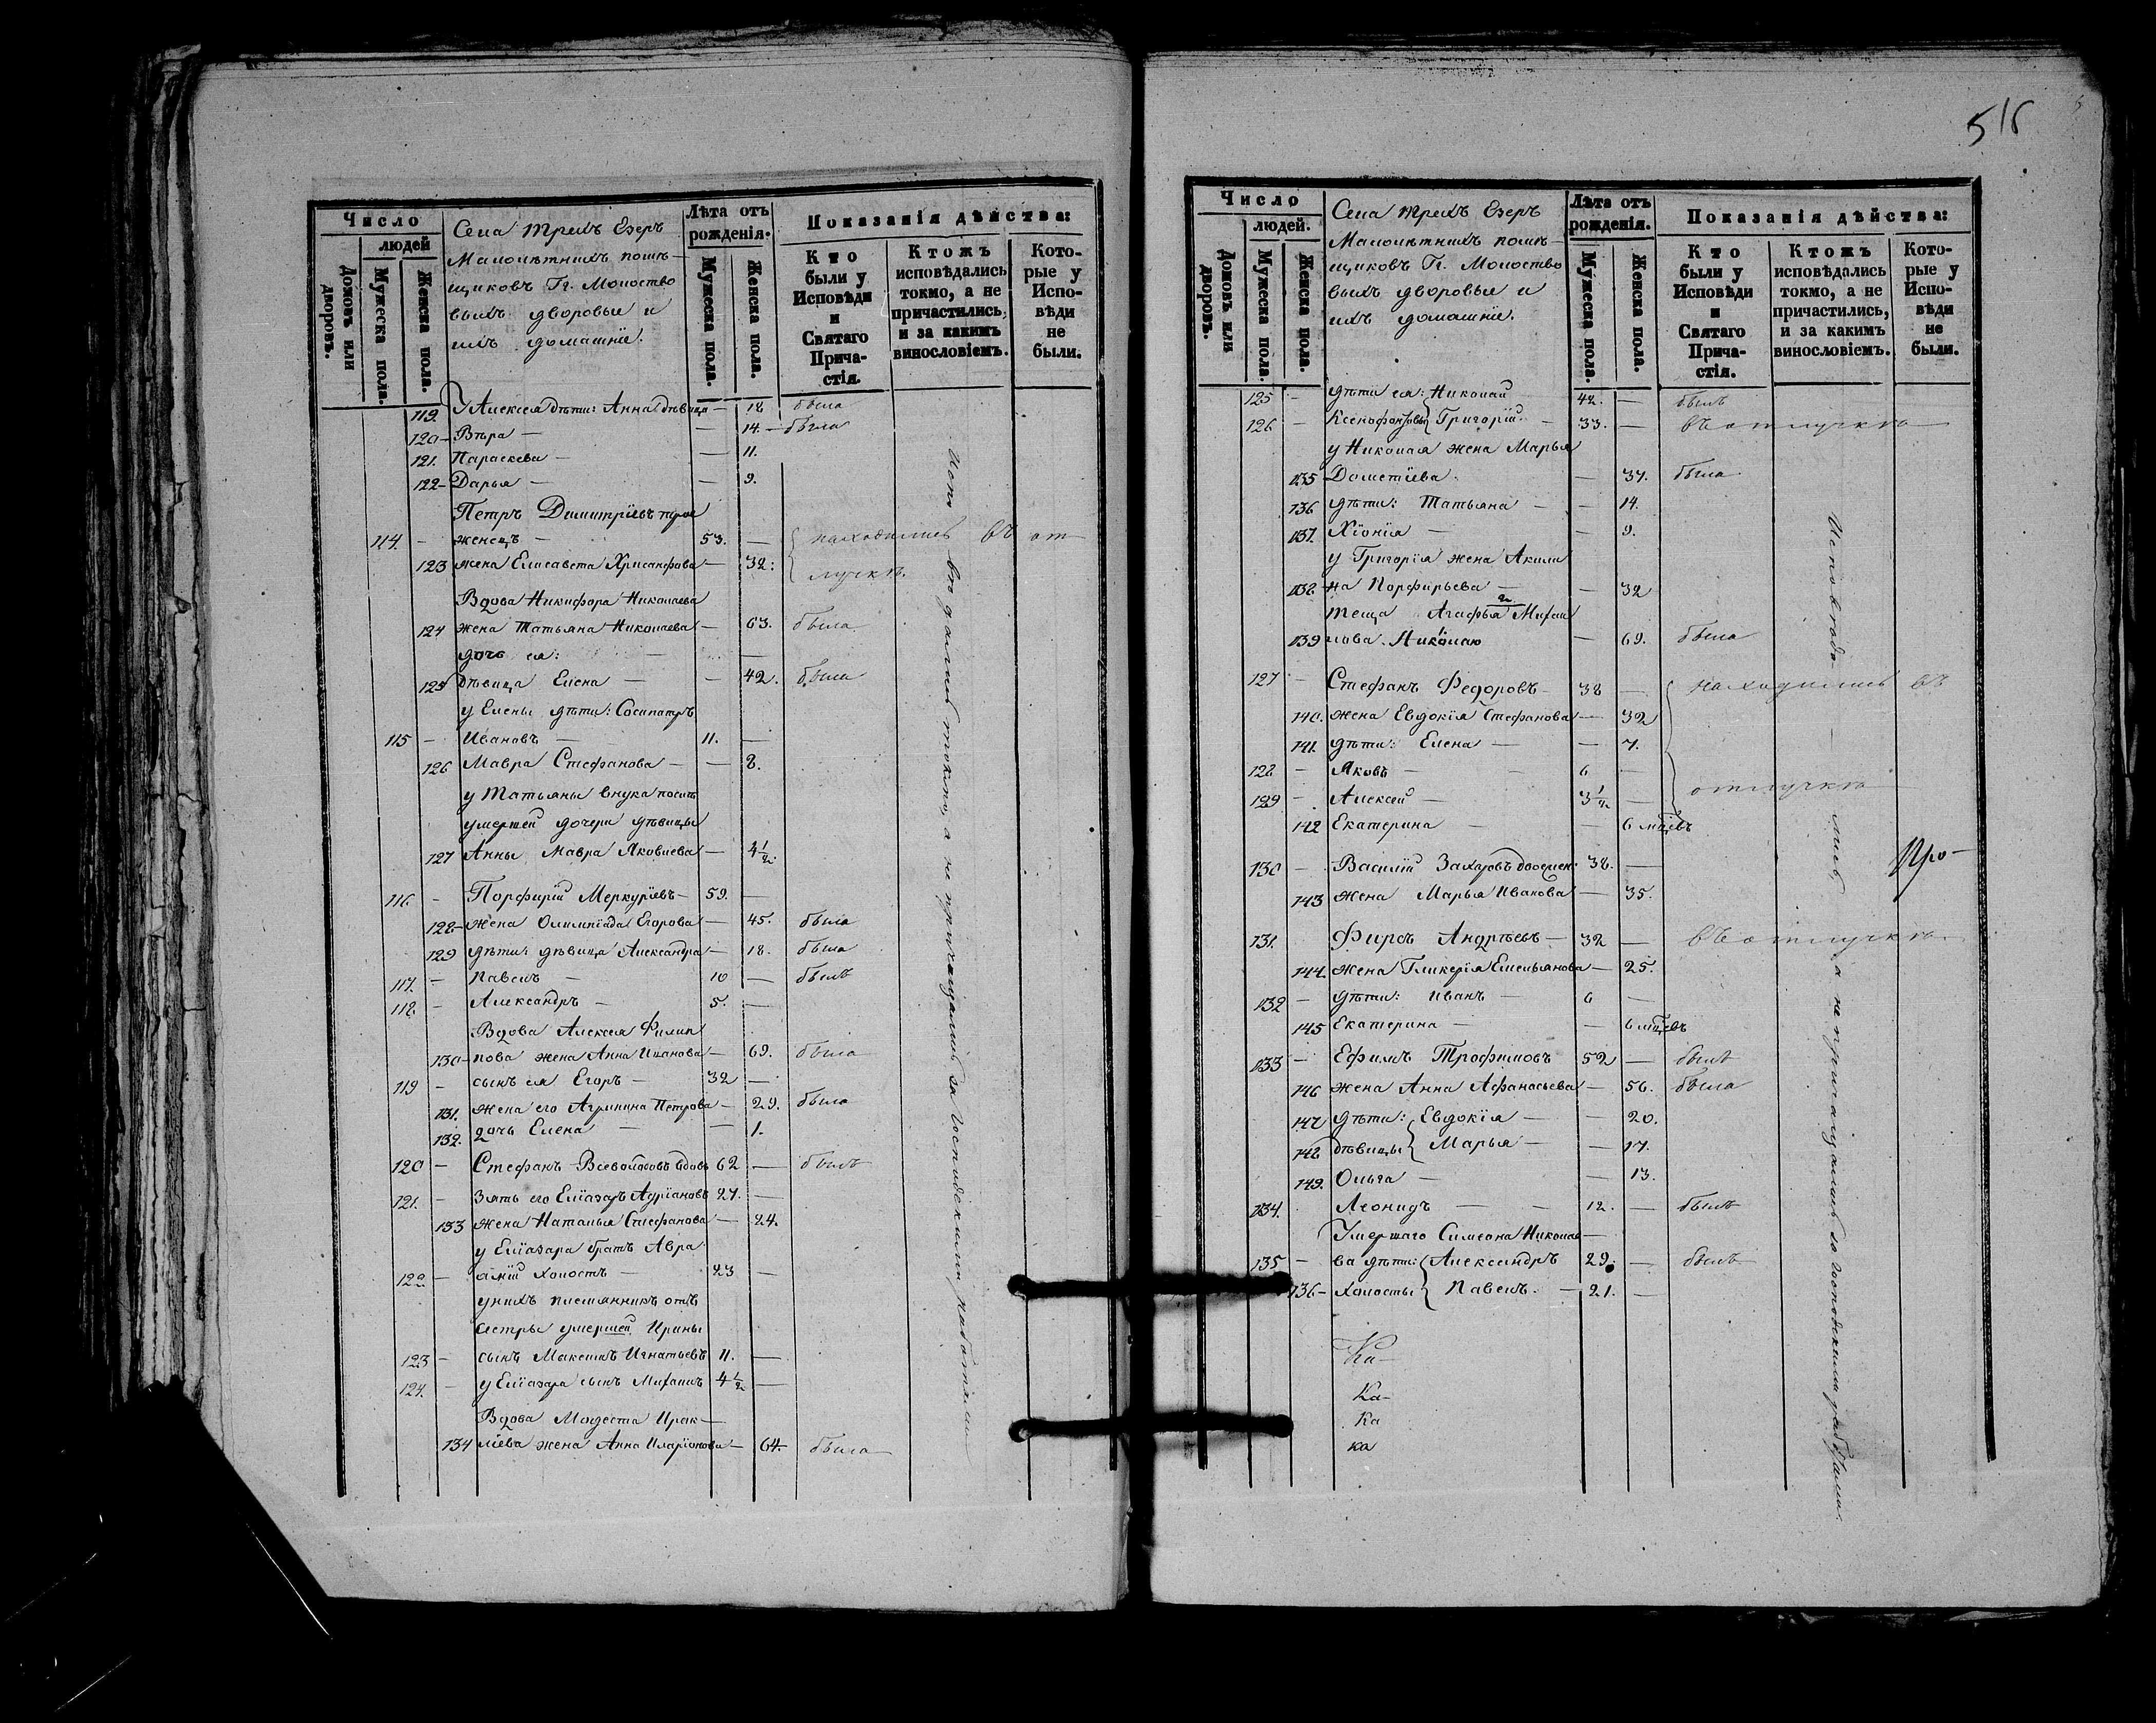 516
Число
людей
Домовъ или дворовъ.
Мужеска пола.
Женска пола.
Села Трехъ Езеръ
Малолѣтнихъ помѣ-
щиковъ Гг. Молоство
выхъ дворовые и
ихъ домашніе.
Лѣта отъ рожденія.
Мужеска пола.
Женска пола.
Показанія дѣйства:
Кто были у Исповѣди и Святаго Прича-стія.
Ктожъ исповѣдались токмо, а не причастились, и за какимъ винословіемъ.
Кото-рые у Испо-вѣди не были.
119. У Алексея дѣти: Анна дѣвица — 18 была
120 - Вѣра — — 14. - была
121. Параскева — — 11.
122 - Дарья — — 9.
Петръ Димитріевъ трое
114. - женецъ — 53. — находились въ от
123 жена Елисавета Хрисанфова — 32. лучкѣ.
Вдова Никифора Николаева
124 жена Татьяна Николаева — 63. была
дочь ея:
125 дѣвица Елена — — 42. была
у Елены дѣти: Сосипатръ
115 - Ивановъ — 11. —
126 Мавра Стефанова — — 8.
у Татьяны внука послѣ
умершей дочери дѣвицы
127 Анны Мавра Яковлева — 4 1/2
116 - Порфирій Меркуріевъ — 59. —
128 - жена Олимпіада Егорова — 45. была
129 дѣти: дѣвица Александра — 18. была
117. - Павелъ — 10 — былъ
118. - Александръ — 5. —
Вдова Алексея Филип
130 - пова жена Анна Иванова — 69. была
119 - сынъ ея Егоръ — 32 —
131. жена его Агрипина Петрова — 29. была
132. дочь Елена — — 1.
120 - Стефанъ Всеволодовъ вдовъ 62 — былъ
121. - Зять его Еліазаръ Адріановъ 27. —
133 жена Наталья Стефанова — 24.
у Еліазара братъ Авра
122 - амій холостъ — 23 —
у нихъ племянникъ отъ
сестры умершей Ирины
123 - сынъ Максимъ Игнатьевъ 11. —
124. - у Еліазара сынъ Михаилъ 4 1/2 —
Вдова Модеста Ирак-
134 ліева жена Анна Иларіонова — 64. была
Исповѣдались токмо, а не причащались за Господскими работами
Число
людей.
Домовъ или дворовъ.
Мужеска пола.
Женска пола.
Села Трехъ Езеръ
Малолѣтнихъ помѣ-
щиковъ Гг. Молоство
выхъ дворовые и
ихъ домашніе.
Лѣта отъ рожденія.
Мужеска пола.
Женска пола.
Показанія дѣйства:
Кто были у Исповѣди и Святаго Прича-стія.
Ктожъ исповѣдались токмо, а не причастились, и за какимъ винословіемъ.
Кото-рые у Испо-вѣди не были.
125 - дѣти ея: Николай 42. — былъ
126 - Ксенофонтовы Григорій — 33. — въ отлучкѣ
у Николая жена Марья
135 Дометіева — 37. была
136 дѣти: Татьяна — — 14.
137. Хіонія — — 9.
у Григорія жена Акили
138 - на Порфирьева — — 32
теща Агафья Михаи
139 лова Николаю — 69. была
127 - Стефанъ Федоровъ — 38 — находились въ
140. жена Евдокія Стефанова — 32
141. дѣти: Елена — — 7.
128 - Яковъ — 6 —
129 - Алексей — 3 1/2 — отлучкѣ
142 Екатерина — — 6 мцевъ
130 - Василій Захаровъ двоежен. 38. —
143 жена Марья Иванова — 35.
131. Фирсъ Андреевъ — 32 — въ отлучкѣ.
144. жена Гликерія Емельянова — 25.
132 - дѣти: Иванъ — 6 —
145 Екатерина — — 6 мцевъ
133 - Ефимъ Трофимовъ 52 — былъ
146 жена Анна Афанасьева — 56. была
147 дѣти: Евдокія — — 20.
148 дѣвицы Марья — — 17.
149. Ольга — — 13.
134. Леонидъ — 12. — былъ
Умершаго Симеона Николае
135 - ва дѣти: Александръ 29. — былъ
136 - Холосты Павелъ. — 21. —
Ка-
Ка-
Ка
ка
Исповѣдались, а не причащались за господскими работами.
Про-